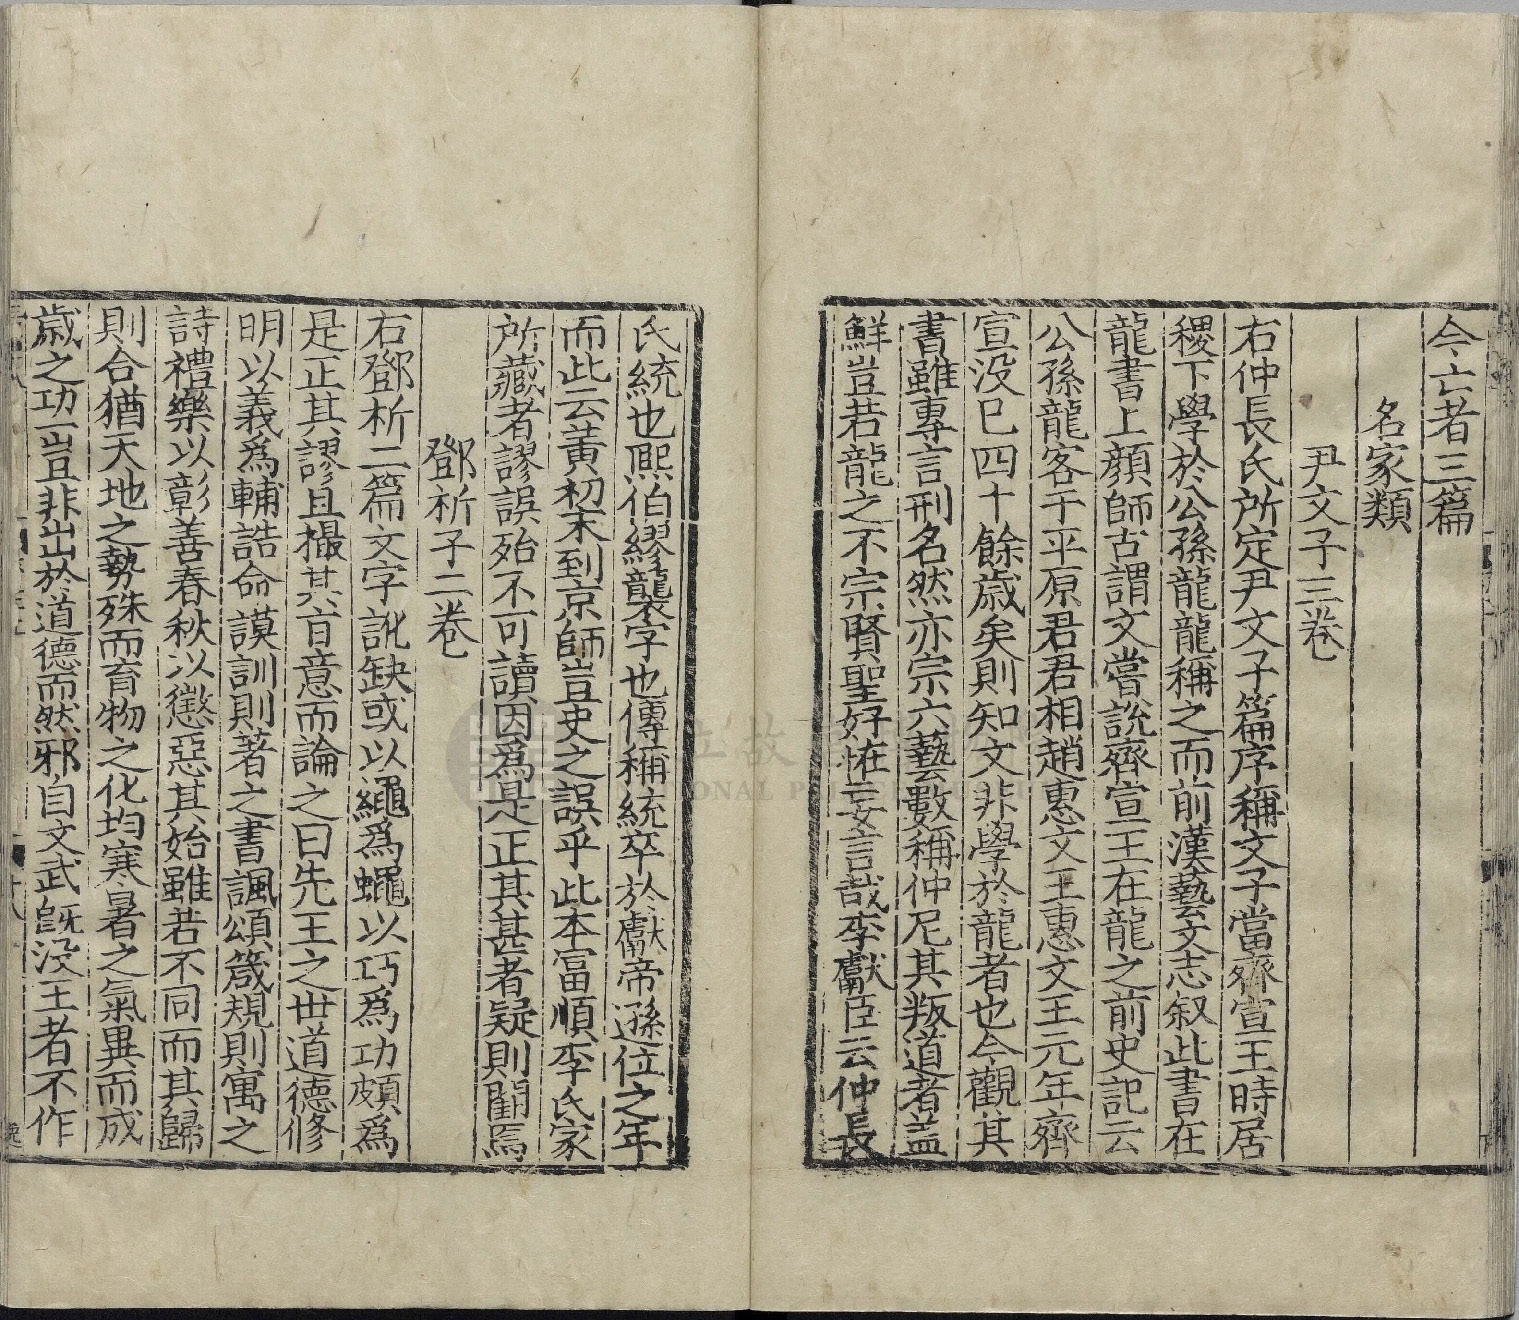 今亡者三篇
名家類
尹文子三卷
右仲長氏所定尹文子篇序稱文子當齊宣王時居
稷下學於公孫龍龍稱之而前漢藝文志叙此書在
龍書上顏師古謂文嘗説齊宣王在龍之前史記云
公孫龍客于平原君君相趙惠文王惠文王元年齊
宣没已四十餘歲矣則知文非學於龍者也今觀其
書雖專言刑名然亦宗六藝數稱仲尼其叛道者蓋
鮮豈若龍之不宗賢聖好怪妄言哉李獻臣云仲長
氏統也熙伯繆襲字也傳稱統卒於獻帝遜位之年
而此云黄初末到京師豈史之誤乎此本富順李氏家
所藏者謬誤殆不可讀因爲是正其甚者疑則闕焉
鄧析子二卷
右鄧析二篇文字訛缺或以繩爲蠅以巧爲功頗爲
是正其謬且撮其旨意而論之曰先王之世道德修
明以義爲輔誥命謨訓則著之書諷頌箴規則寓之
詩禮樂以彰善春秋以懲惡其始雖若不同而其歸
則合猶天地之勢殊而育物之化均寒暑之氣異而成
歲之功一豈非出於道德而然邪自文武既没王者不作